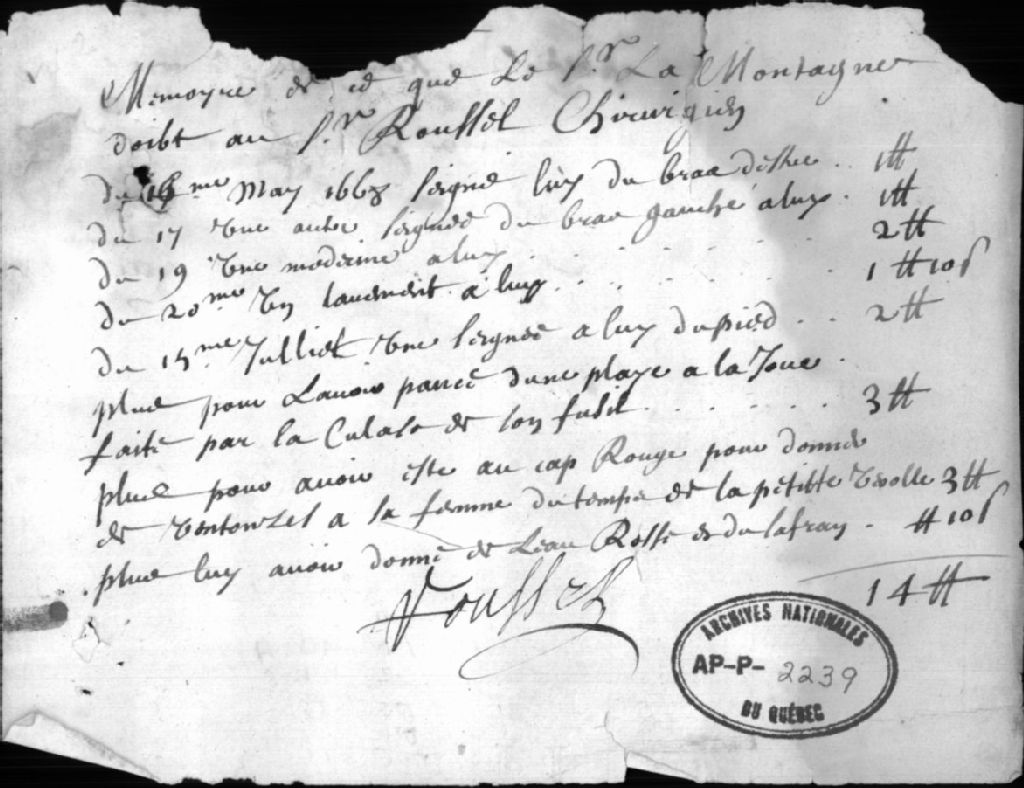 Memoyre de ce que Le Sr. La Montagne
doibt au Sr. Roussel Chirurgien
du 16me. May 1668 seigné luy du bras destre .. 1#
du 17 Une autre seignée du bras gauche a luy . 1#
du 19 Une medecine a luy . . . . . . 2#
du 20me. Un lavement a luy . . . . 1#10s
du 15me. Julliet Une seignée a luy du pied . . 2#
plus pour Lavoir pancé dune playe a la Joue .
faite par la Culase de son fusil . . . . . . . 3#
plus pour avoir esté au cap Rouge pour donner
de Ventouses a sa femme du temps de la petitte Verolle 3#
plus luy avoir donné de Leau Rosse et du safran . #10s
14#
Roussel
ARCHIVES NATIONALES
AP-P- 2239
DU QUÉBEC